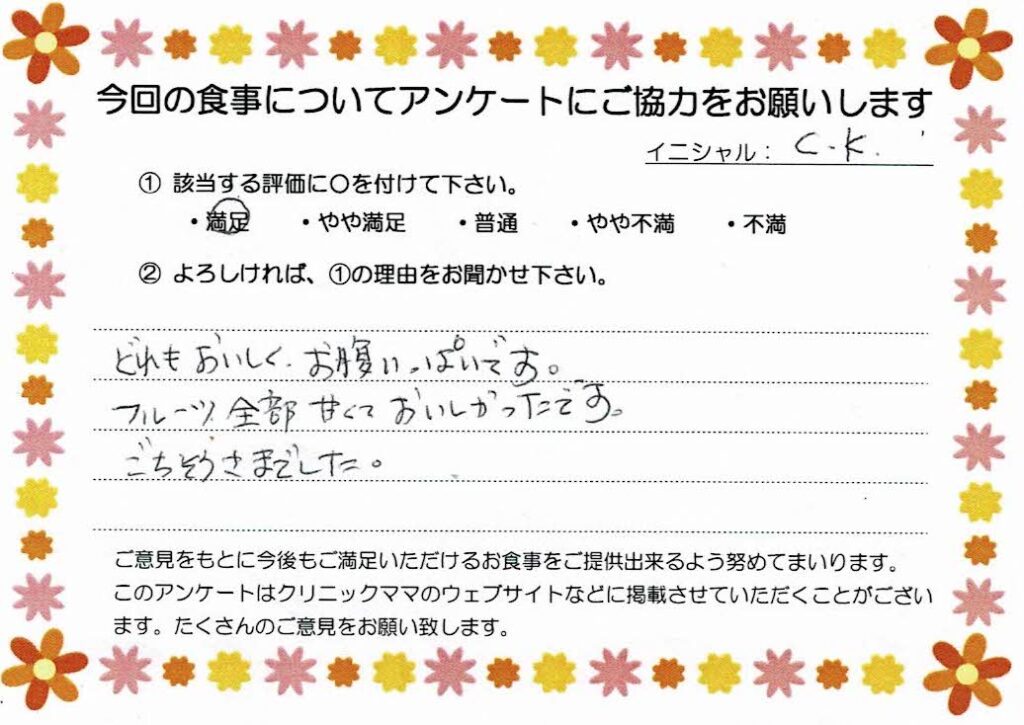 今回の食事についてアンケートにご協力をお願いします
イニシャル： C.K.
① 該当する評価に〇を付けて下さい。
・満足 ・やや満足 ・普通 ・やや不満 ・不満
② よろしければ、①の理由をお聞かせ下さい。
どれもおいしく、お腹いっぱいです。
フルーツ全部甘くておいしかったです。
ごちそうさまでした。
ご意見をもとに今後もご満足いただけるお食事をご提供出来るよう努めてまいります。
このアンケートはクリニックママのウェブサイトなどに掲載させていただくことがござい
ます。たくさんのご意見をお願い致します。